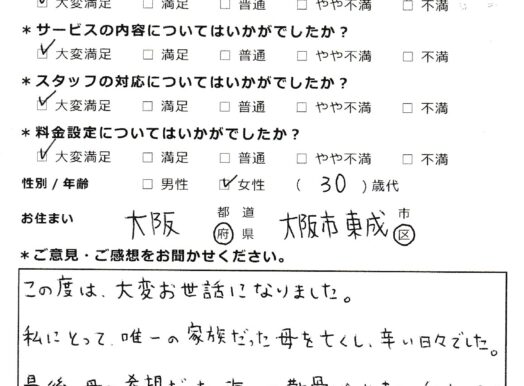 ☑ 大変満足 □ 満足 □ 普通 □ やや不満 □ 不満
＊サービスの内容についてはいかがでしたか？
☑ 大変満足 □ 満足 □ 普通 □ やや不満 □ 不満
＊スタッフの対応についてはいかがでしたか？
☑ 大変満足 □ 満足 □ 普通 □ やや不満 □ 不満
＊料金設定についてはいかがでしたか？
☑ 大変満足 □ 満足 □ 普通 □ やや不満 □ 不満
性別 / 年齢 □ 男性 ☑ 女性 ( 30 ) 歳代
お住まい 大阪 都 道 府 県 大阪市東成 市 区
＊ご意見・ご感想をお聞かせください。
この度は、大変お世話になりました。
私にとって、唯一の家族だった母を亡くし、辛い日々でした。
最後